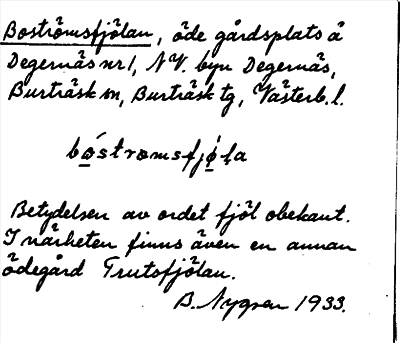 Boströmsfjölan, öde gårdsplats å
Degernäs nr 1, NV. byn Degernäs,
Burträsk sn, Burträsk tg, Västerb. l.
bóstromsfjo̍ḷa
Betydelsen av ordet fjöl obekant.
I närheten finns även en annan
ödegård Trutsfjölan.
B. Nygren 1933.